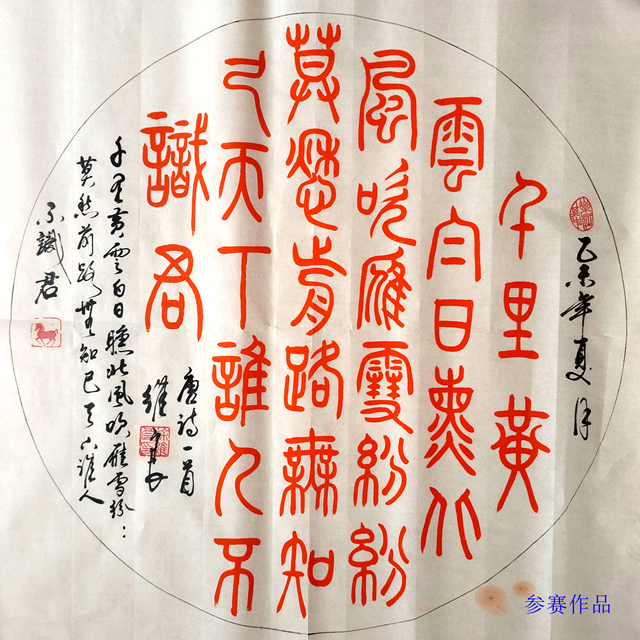 乙未年夏月
千里黃
雲白日熏北
風吹雁雪紛紛
莫愁前路無知
己天下誰人不
識君
唐诗一首
千里黄雲白日曛北風吹雁雪紛：：
莫愁前路無知己天下誰人
不識君
参赛作品